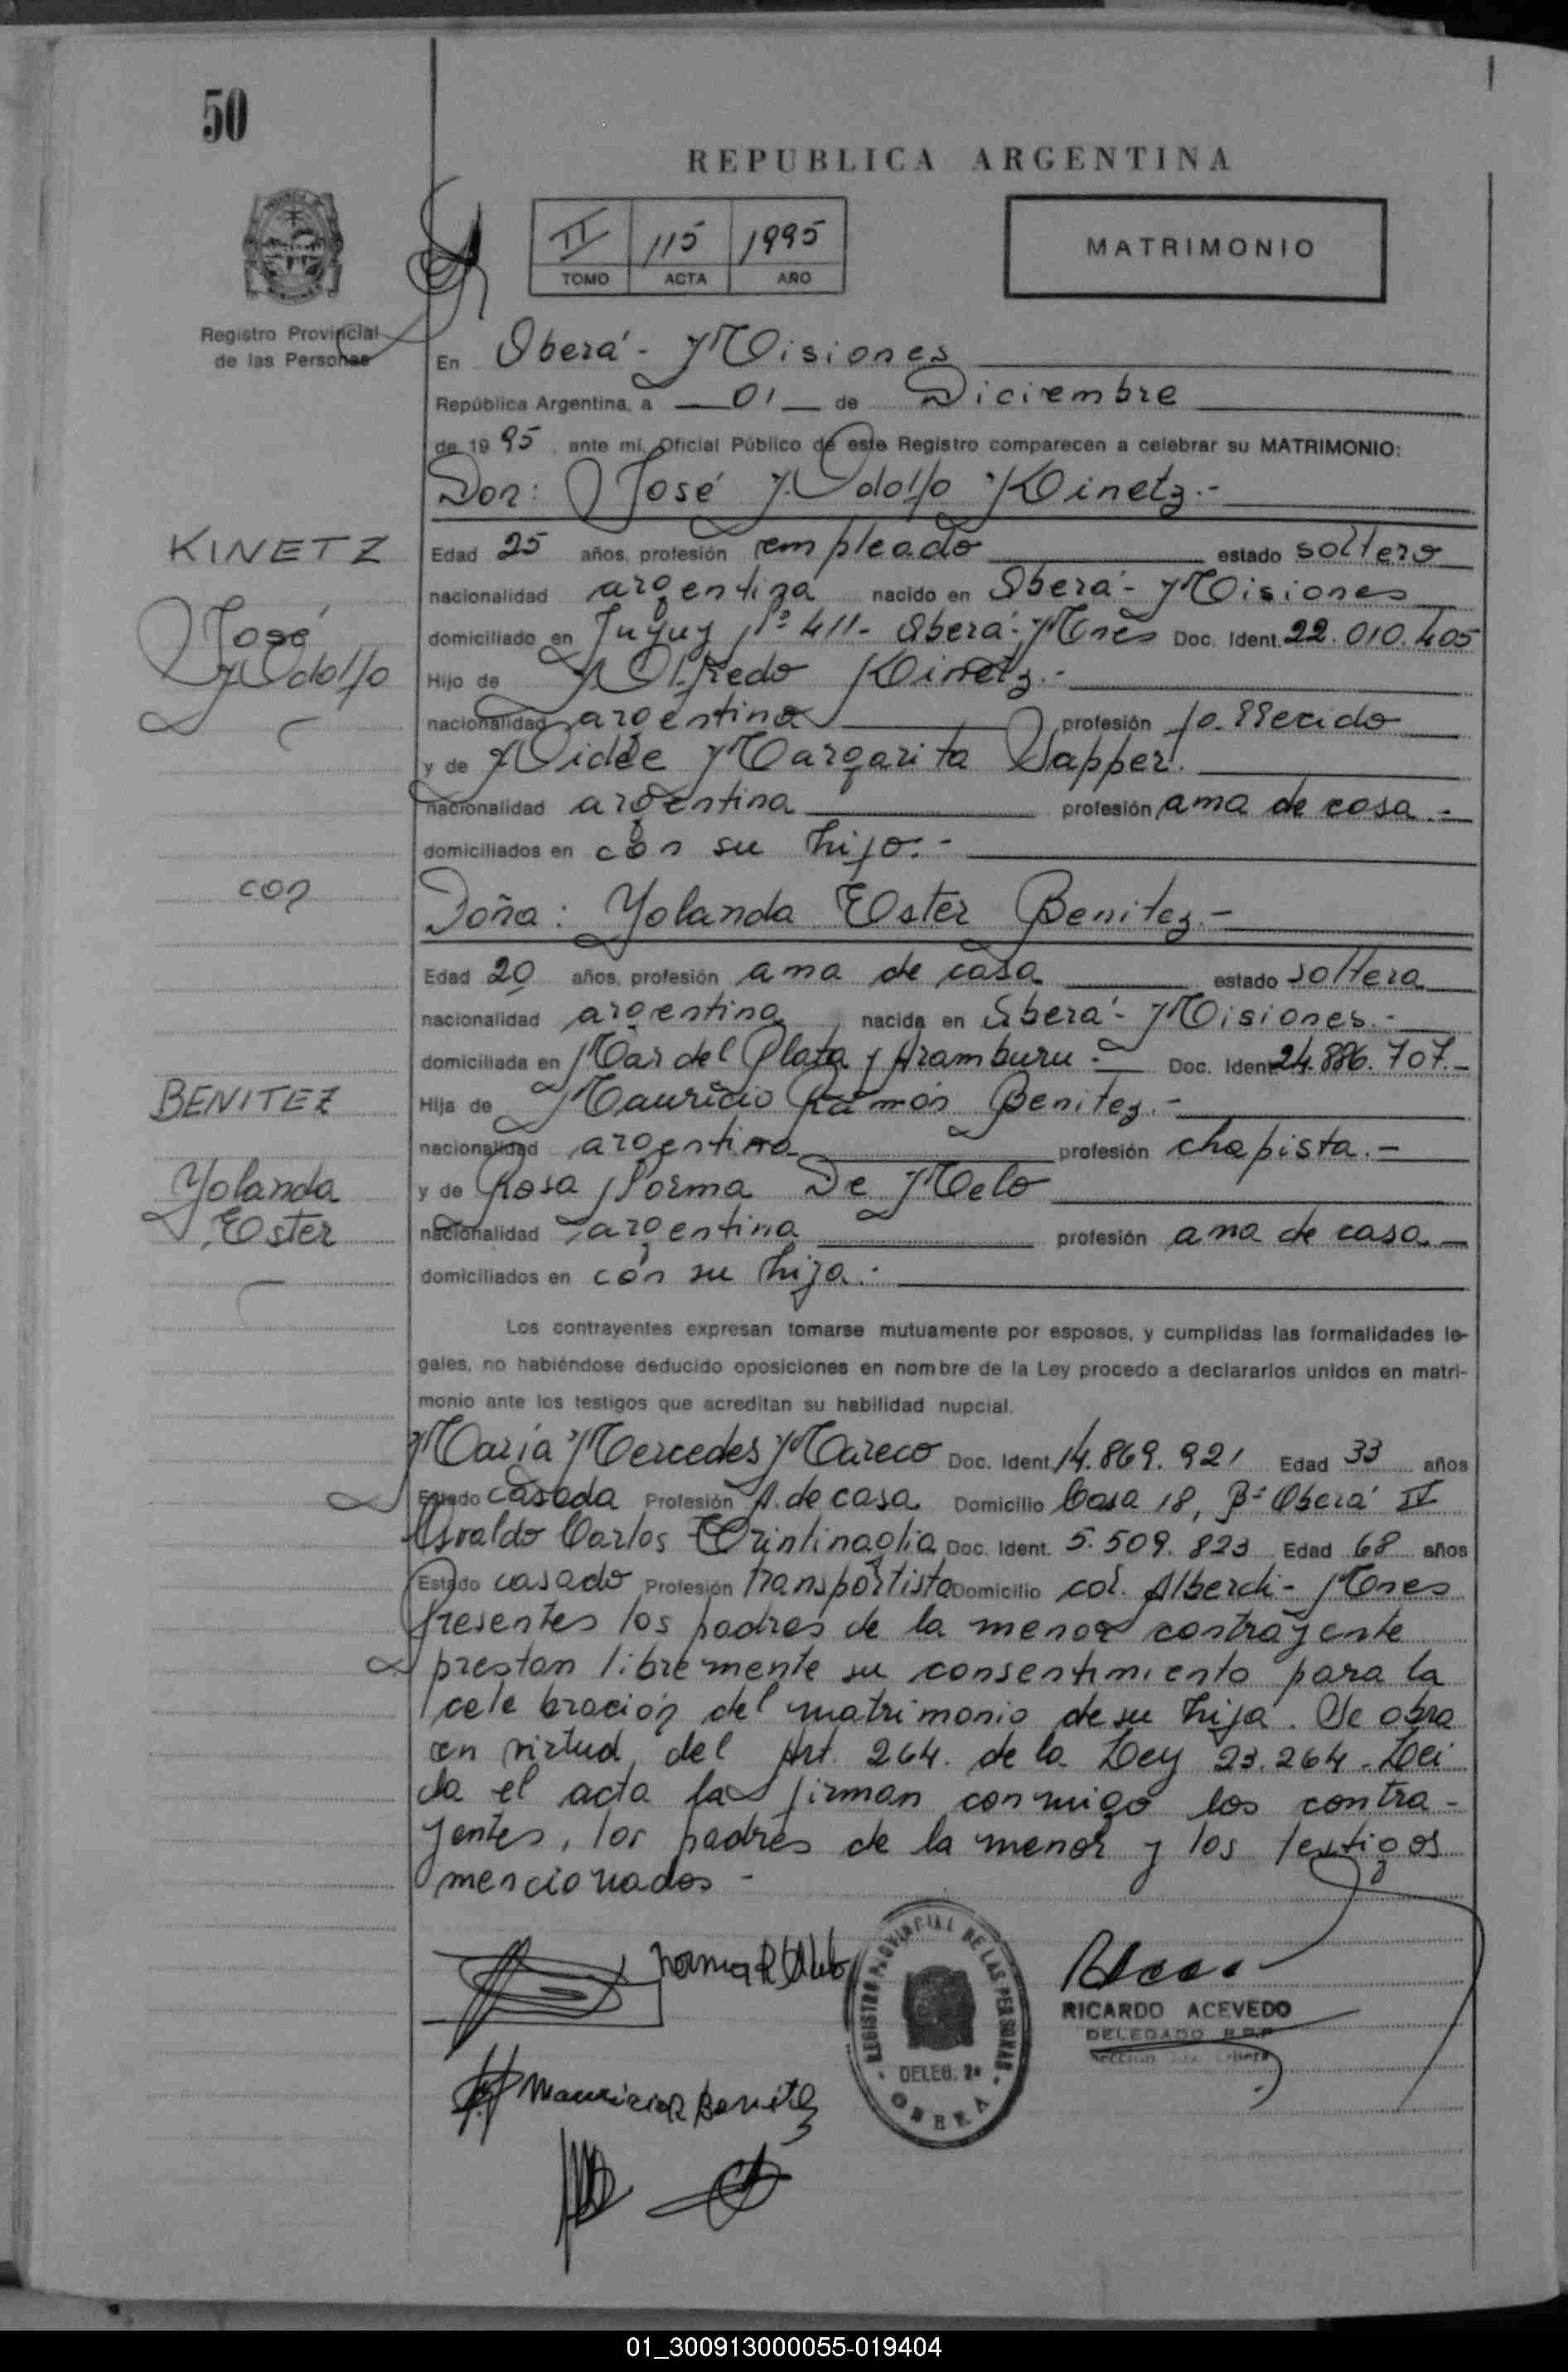 50
REPUBLICA ARGENTINA
II 115 1995
TOMO ACTA AÑO
MATRIMONIO
Registro Provincial
de las Personas
En Oberá - Misiones
República Argentina, a 01 de Diciembre
de 1995, ante mí, Oficial Público de este Registro comparecen a celebrar su MATRIMONIO:
Don: José Adolfo Kinetz.-
KINETZ
José
Adolfo
Edad 25 años, profesión empleado estado soltero
nacionalidad argentina nacido en Oberá - Misiones
domiciliado en Jujuy Nº 411 - Oberá - Mnes Doc. Ident. 22.010.405
Hijo de Alfredo Kinetz.-
nacionalidad argentina profesión fallecido
y de Aidée Margarita Sapper.
nacionalidad argentina profesión ama de casa.-
domiciliados en con su hijo.-
con
Doña: Yolanda Ester Benitez.-
Edad 20 años, profesión ama de casa estado soltera
nacionalidad argentina nacida en Oberá - Misiones.-
domiciliada en Mar del Plata y Aramburu - Doc. Ident. 24.886.707.-
BENITEZ
Yolanda
Ester
Hija de Mauricio Ramón Benitez.-
nacionalidad argentina profesión chapista.-
y de Rosa Norma De Melo
nacionalidad argentina profesión ama de casa.-
domiciliados en con su hija.
Los contrayentes expresan tomarse mutuamente por esposos, y cumplidas las formalidades le-
gales, no habiéndose deducido oposiciones en nombre de la Ley procedo a declararlos unidos en matri-
monio ante los testigos que acreditan su habilidad nupcial.
María Mercedes Mareco Doc. Ident. 14.869.921 Edad 33 años
Estado casada Profesión A. de casa Domicilio Casa 18, Bº Oberá IV
Osvaldo Carlos Doc. Ident. 5.509.823 Edad 68 años
Estado casado Profesión transportista Domicilio col. Alberdi - Mnes
Presentes los padres de la menor contrayente
prestan libremente su consentimiento para la
celebración del matrimonio de su hija. Se obra
en virtud del Art. 264. de la Ley 23.264. Lei
da el acta la firman conmigo los contra-
yentes, los padres de la menor y los testigos
mencionados -
Norma R D Melo
Mauricio R Benitez
REGISTRO PROVINCIAL DE LAS PERSONAS
DELEG. 2ª
OBERA
RICARDO ACEVEDO
DELEGADO R.P.P.
01_300913000055-019404